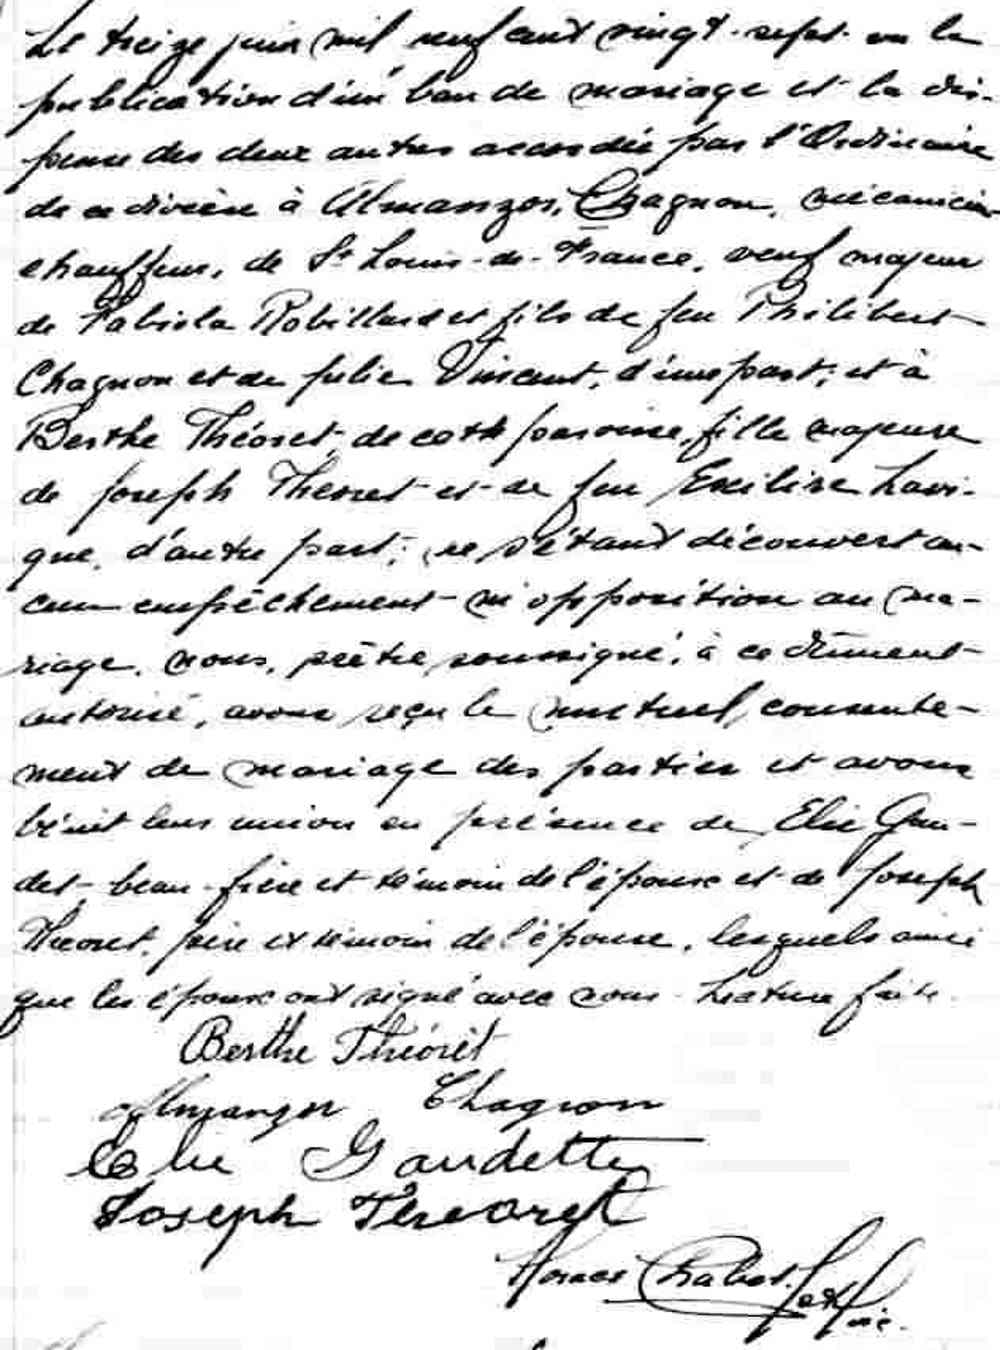 Le treize juin mil neuf cent vingt-sept vu la
publication d'un ban de mariage et la dis-
pense des deux autres accordée par l'Ordinaire
de ce diocèse à Almanzor Chagnon, mécanicien
chauffeur, de St Louis-de-France, veuf majeur
de Fabiola Robillard et fils de feu Philibert
Chagnon et de Julie Vincent, d'une part; et à
Berthe Théoret, de cette paroisse, fille majeure
de Joseph Théoret et de feu Exilire Lavi-
gue, d'autre part; ne s'étant découvert au-
cun empêchement ni opposition au ma-
riage, nous, prêtre soussigné, à ce dûment
autorisé, avons reçu le mutuel consente-
ment de mariage des parties et avons
bénit leur union en présence de Elie Gau-
det, beau-frère et témoin de l'époux et de Joseph
Théoret, père et témoin de l'épouse, lesquels ainsi
que les époux ont signé avec nous. Lecture faite.
Berthe Théorêt
Almanzor Chagnon
Elie Gaudette
Joseph Theoret
Chabot ptre vic.